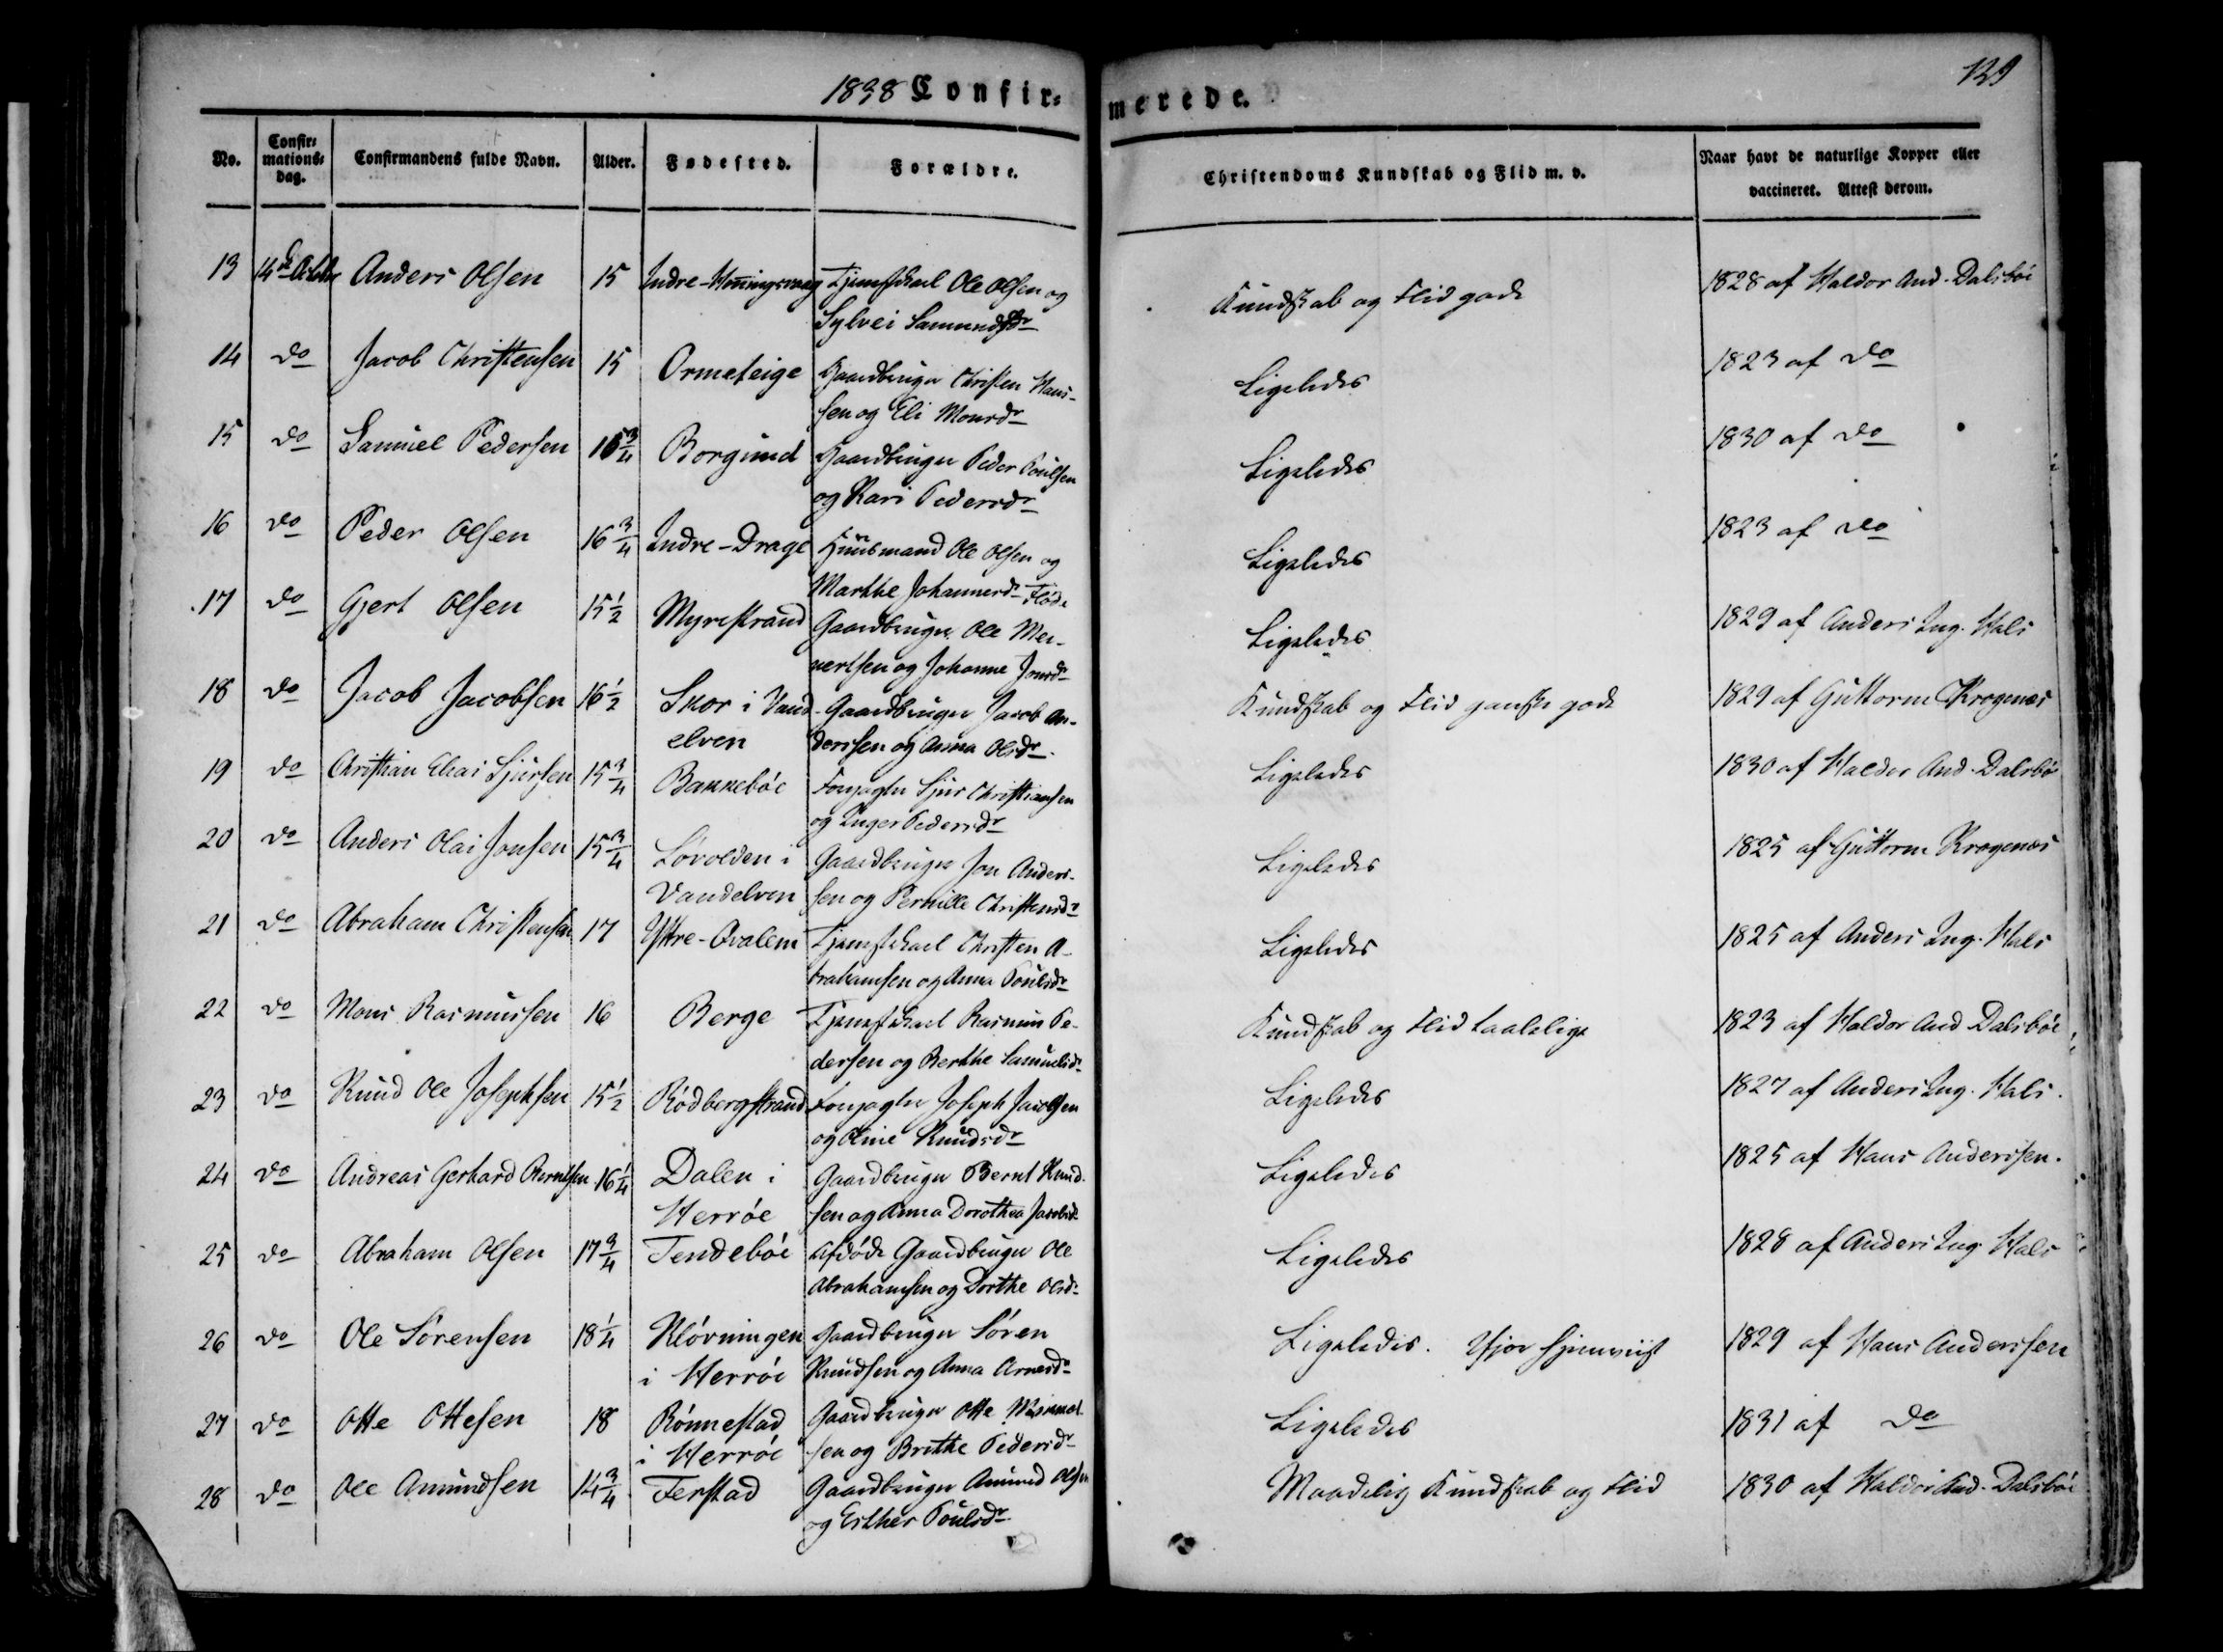 1838 Confir-
merede.
139
No.
Confir-
mations-
dag.
Confirmandens fulde Navn.
Alder.
Fødested.
Forældre.
Christendoms Kundskab og Flid m. v.
Naar havt de naturlige Kopper eller
vaccineret. Attest derom.
13 14de Anders Olsen 15 Indre-Honingsvaag Ole Olsen og
Sylvei
Kundskab og Flid gode 1828 af Haldor And. Dalsböe
14 do Jacob Christensen 15 Ormeteige Gaardbruger Christen Hans-
sen og Eli Monsdr
Ligeledes 1823 af do
15 do Samuel Pedersen 15 3/4 Borgund Gaardbruger Peder Poulsen
og Kari Pedersdr
Ligeledes 1830 af do
16 do Peder Olsen 16 3/4 Indre-Drage Huusmand Ole Olsen og
Marthe Johannesdr Flöde
Ligeledes 1823 af do
17 do Gjert Olsen 15 1/2 Myrestrand Gaardbruger Ole Mei-
nertsen og Johanne Jonsdr
Ligeledes 1829 af Anders Ing. Hals
18 do Jacob Jacobsen 16 1/2 Skor i Vand- Gaardbruger Jacob An-
elven dersen og Anna Olsdr.
Kundskab og Flid ganske gode 1829 af Guttorm Krogenæs
19 do Christian Elias Sjursen 15 3/4 Bakkeböe Sjur Christiansen
og Inger Pedersdr
Ligeledes 1830 af Haldor And. Dalsbö
20 do Anders Olai Jonsen 15 3/4 Lövolden i Gaardbruger Jon Anders-
Vandelven sen og Pernille Christensdr
Ligeledes 1825 af Guttorm Krogenæs
21 do Abraham Christensen 17 Yttre-Qvalem Christen A-
brahamsen og Anna Poulsdr
Ligeledes 1825 af Anders Ing. Hals
22 do Mons Rasmussen 16 Berge Rasmus Pe-
dersen og Berthe Samuelsdr
Kundskab og Flid taalelige 1823 af Haldor And. Dalsböe
23 do Knud Ole Josephsen 15 1/2 Rödbergstrand Joseph Jacobsen
og Oline Knudsdr
Ligeledes 1827 af Anders Ing. Hals.
24 do Andreas Gerhard Berntsen 16 1/4 Dalen i Gaardbruger Bernt Knud-
Herröe sen og Anna Dorothea Jacobsdr
Ligeledes 1825 af Hans Anderssen.
25 do Abraham Olsen 17 3/4 Tendeböe Afdöde Gaardbruger Ole
Abrahamsen og Dorthe Olsdr
Ligeledes 1828 af Anders Ing. Hals
26 do Ole Sörensen 18 1/4 Klövningen Gaardbruger Sören
i Herröe Knudsen og Anna Arnesdr
Ligeledes. 1829 af Hans Anderssen
27 do Otte Ottesen 18 Rönnestad Gaardbruger Otte
i Herröe sen og Brithe Pedersdr
Ligeledes 1831 af do
28 do Ole Amundsen 14 3/4 Ferstad Gaardbruger Amund Olsen
og Esther Poulsdr
Maadelig Kundskab og Flid 1830 af Haldor And. Dalsböe